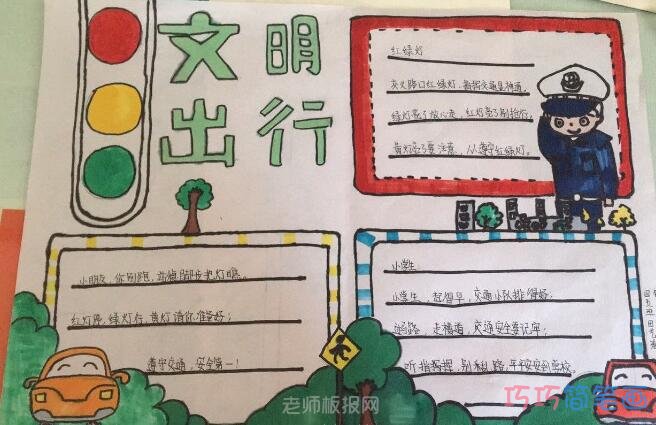 文明
出行
红绿灯
交叉路口红绿灯，指挥交通显神通，
绿灯亮了放心走，红灯亮了别抢行，
黄灯亮了要注意，人人遵守红绿灯。
小朋友，你别跑，站稳脚步把灯瞧。
红灯停，绿灯行，黄灯请你准备好；
遵守交通，安全第一！
小学生
小学生，起得早，交通小队排得好；
过马路，走横道，交通安全要记牢；
听指挥，别乱跑，平平安安到学校。
老师板报网
巧巧简笔画